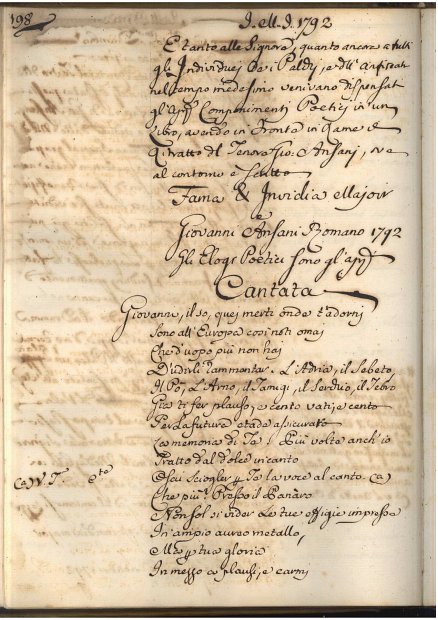 198
1792
E tanto alle Signore, quanto ancora a tutti
gli Individuej de i Palchj, e
nel tempo medesimo venivano dispensati
gli Componimenti Poetici in un
Libro, avendo in Fronte in Rame il
Ritratto del Tenore Gio: Ansani,
al contorno è scritto
Fama & Invidia Major
e
Giovanni Ansani Romano 1792
Gli Elogj Poetici sono gl'
Cantata
Giovanni, il so, quej merti onde t'adorni
Sono all'Europa così noti omaj
Che d'uopo più non haj
D'udirli rammentar. L'Adria, il Sebeto,
Il Po, L'Arno, il Tamigi, il Tebro
Già ti fer plauso, e cento vati, e cento
Per La futura etade assicurato
La memoria di Te. Più volte anch'io
Tratto dal dolce incanto
Osai sciogler per Te la voce al canto.
Che più? Presso il Panaro
Non sol si vider Le tue effigie impressa
In ampio aureo metallo,
per tua gloria
In mezzo a plausi, e carmi